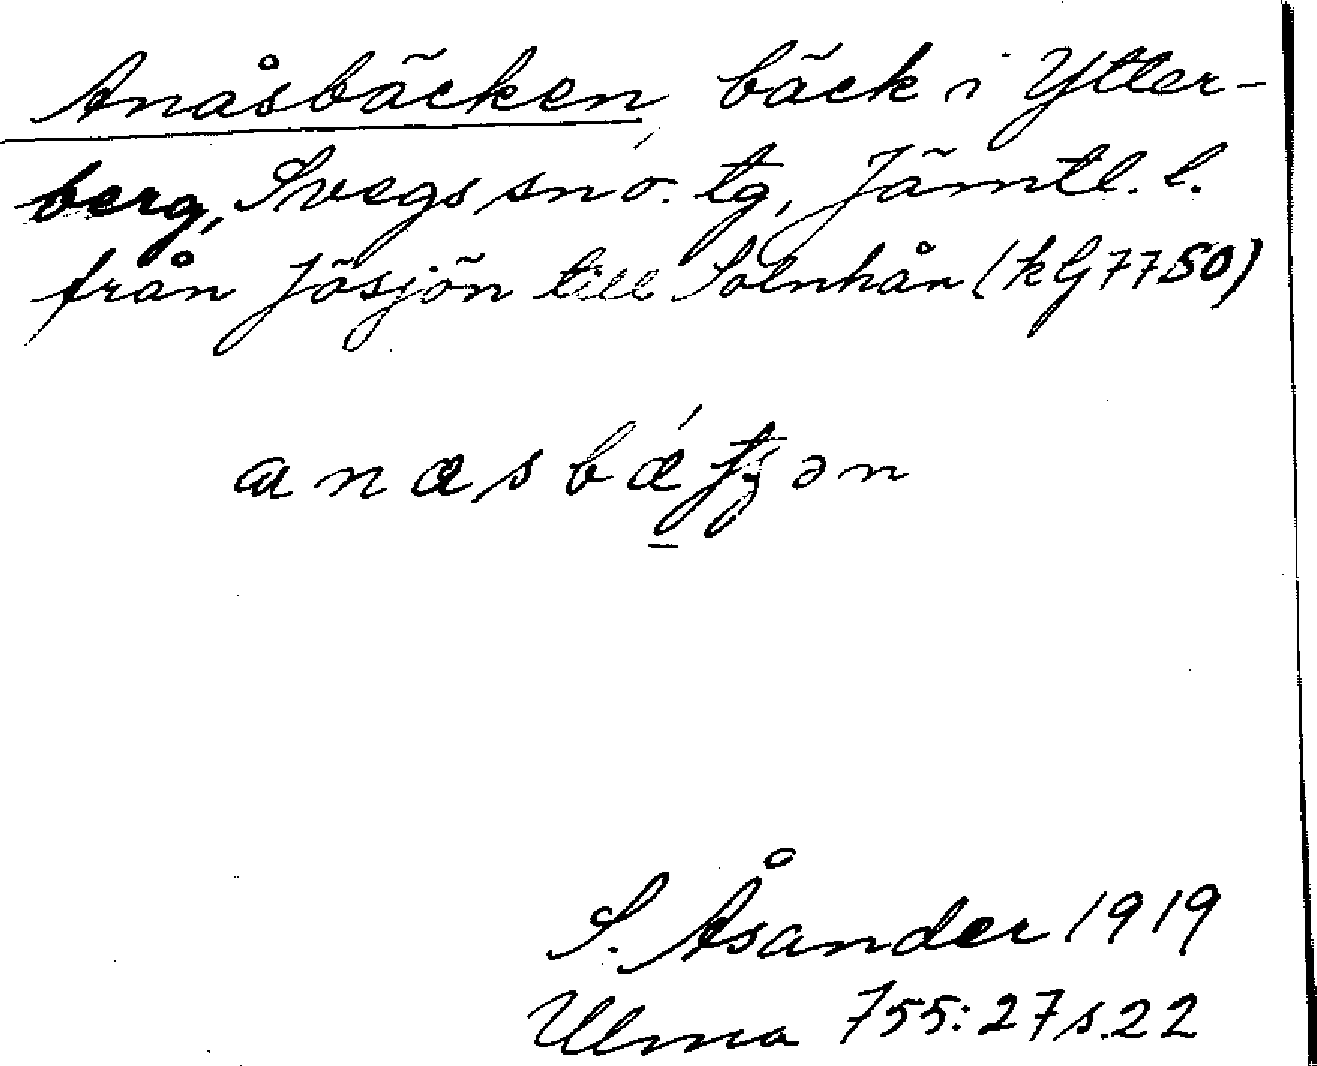 Anåsbäcken, bäck i Ytter-
berg, Svegs sn o. tg, Jämtl. l.
från Jösjön till Solnhån (kG7750)
S. Åsander 1919
Ulma 755:27 s.22